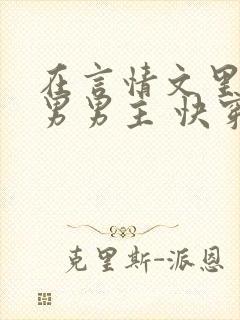 在言情文里
男男主 快穿
克里斯-派恩